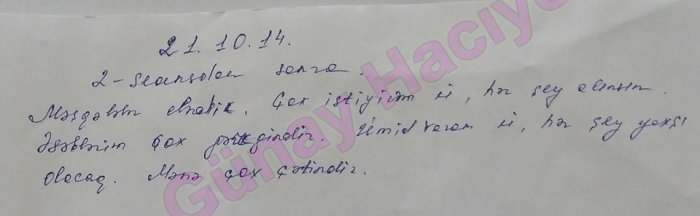 21.10.14.
2-seansdan sonra.
Məşqələlər etmədik. Çox istəyirəm ki, hər şey alınsın.
Əsəblərim çox gərgindir. Ümid varam ki, hər şey yaxşı
olacaq. Mənə çox çətindir.
Günay Hacıye